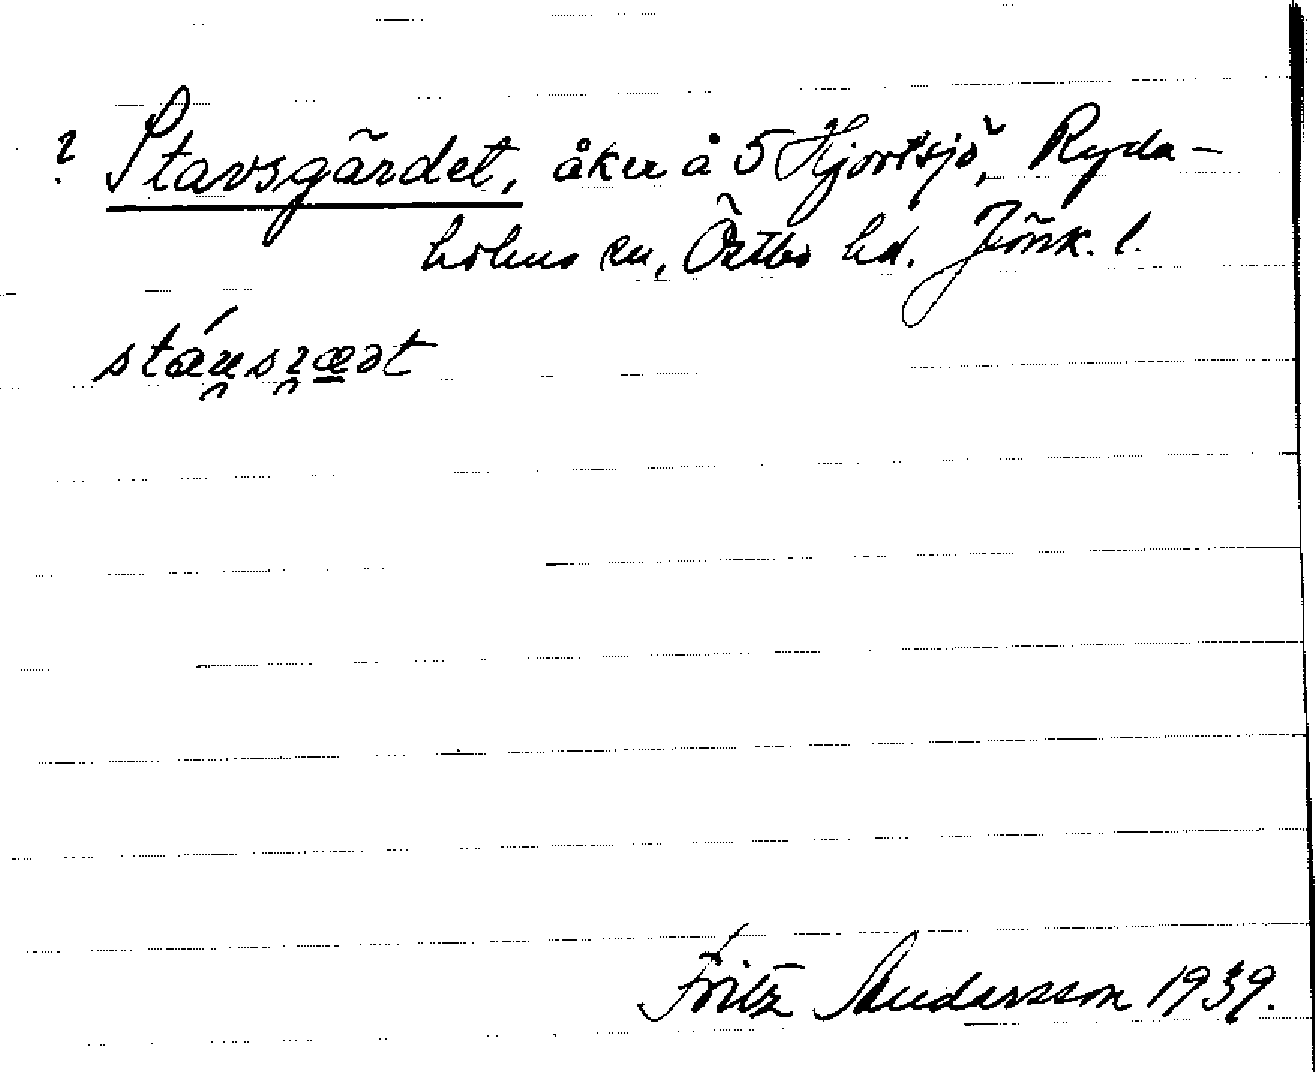 ? Stavsgärdet, åker å 5 Hjortsjö, Ryda-
holms sn, Östbo hd. Jönk. l.
Fritz Andersson 1939.